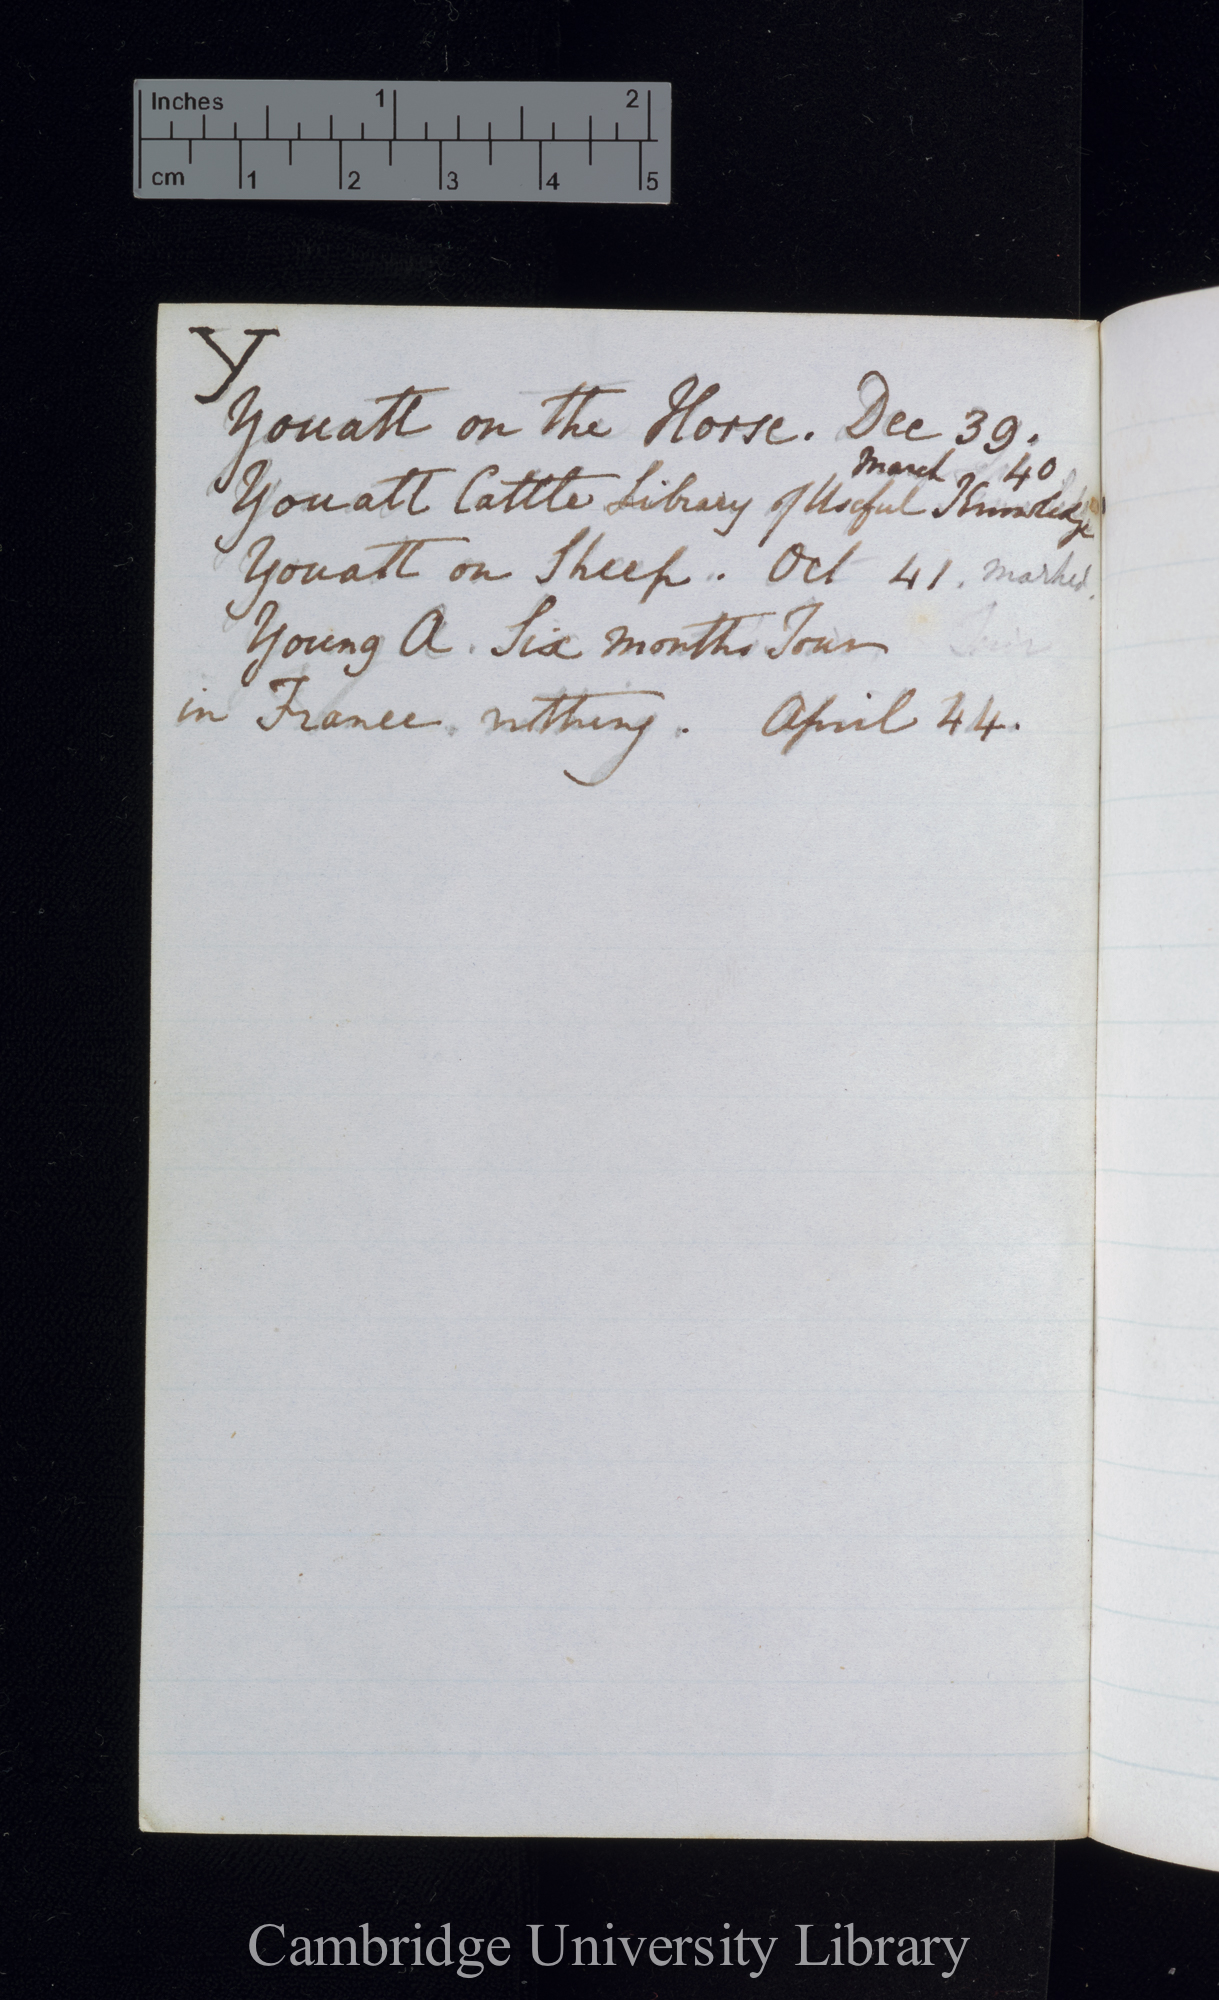 Inches 1 2
cm 1 2 3 4 5
Y
Youatt on the Horse. Dec 39.
March 40
Youatt Cattle Library of Useful Knowledge
Youatt on Sheep. Oct 41. marked.
Young A. Six months Tour
in France. nothing. April 44.
Cambridge University Library